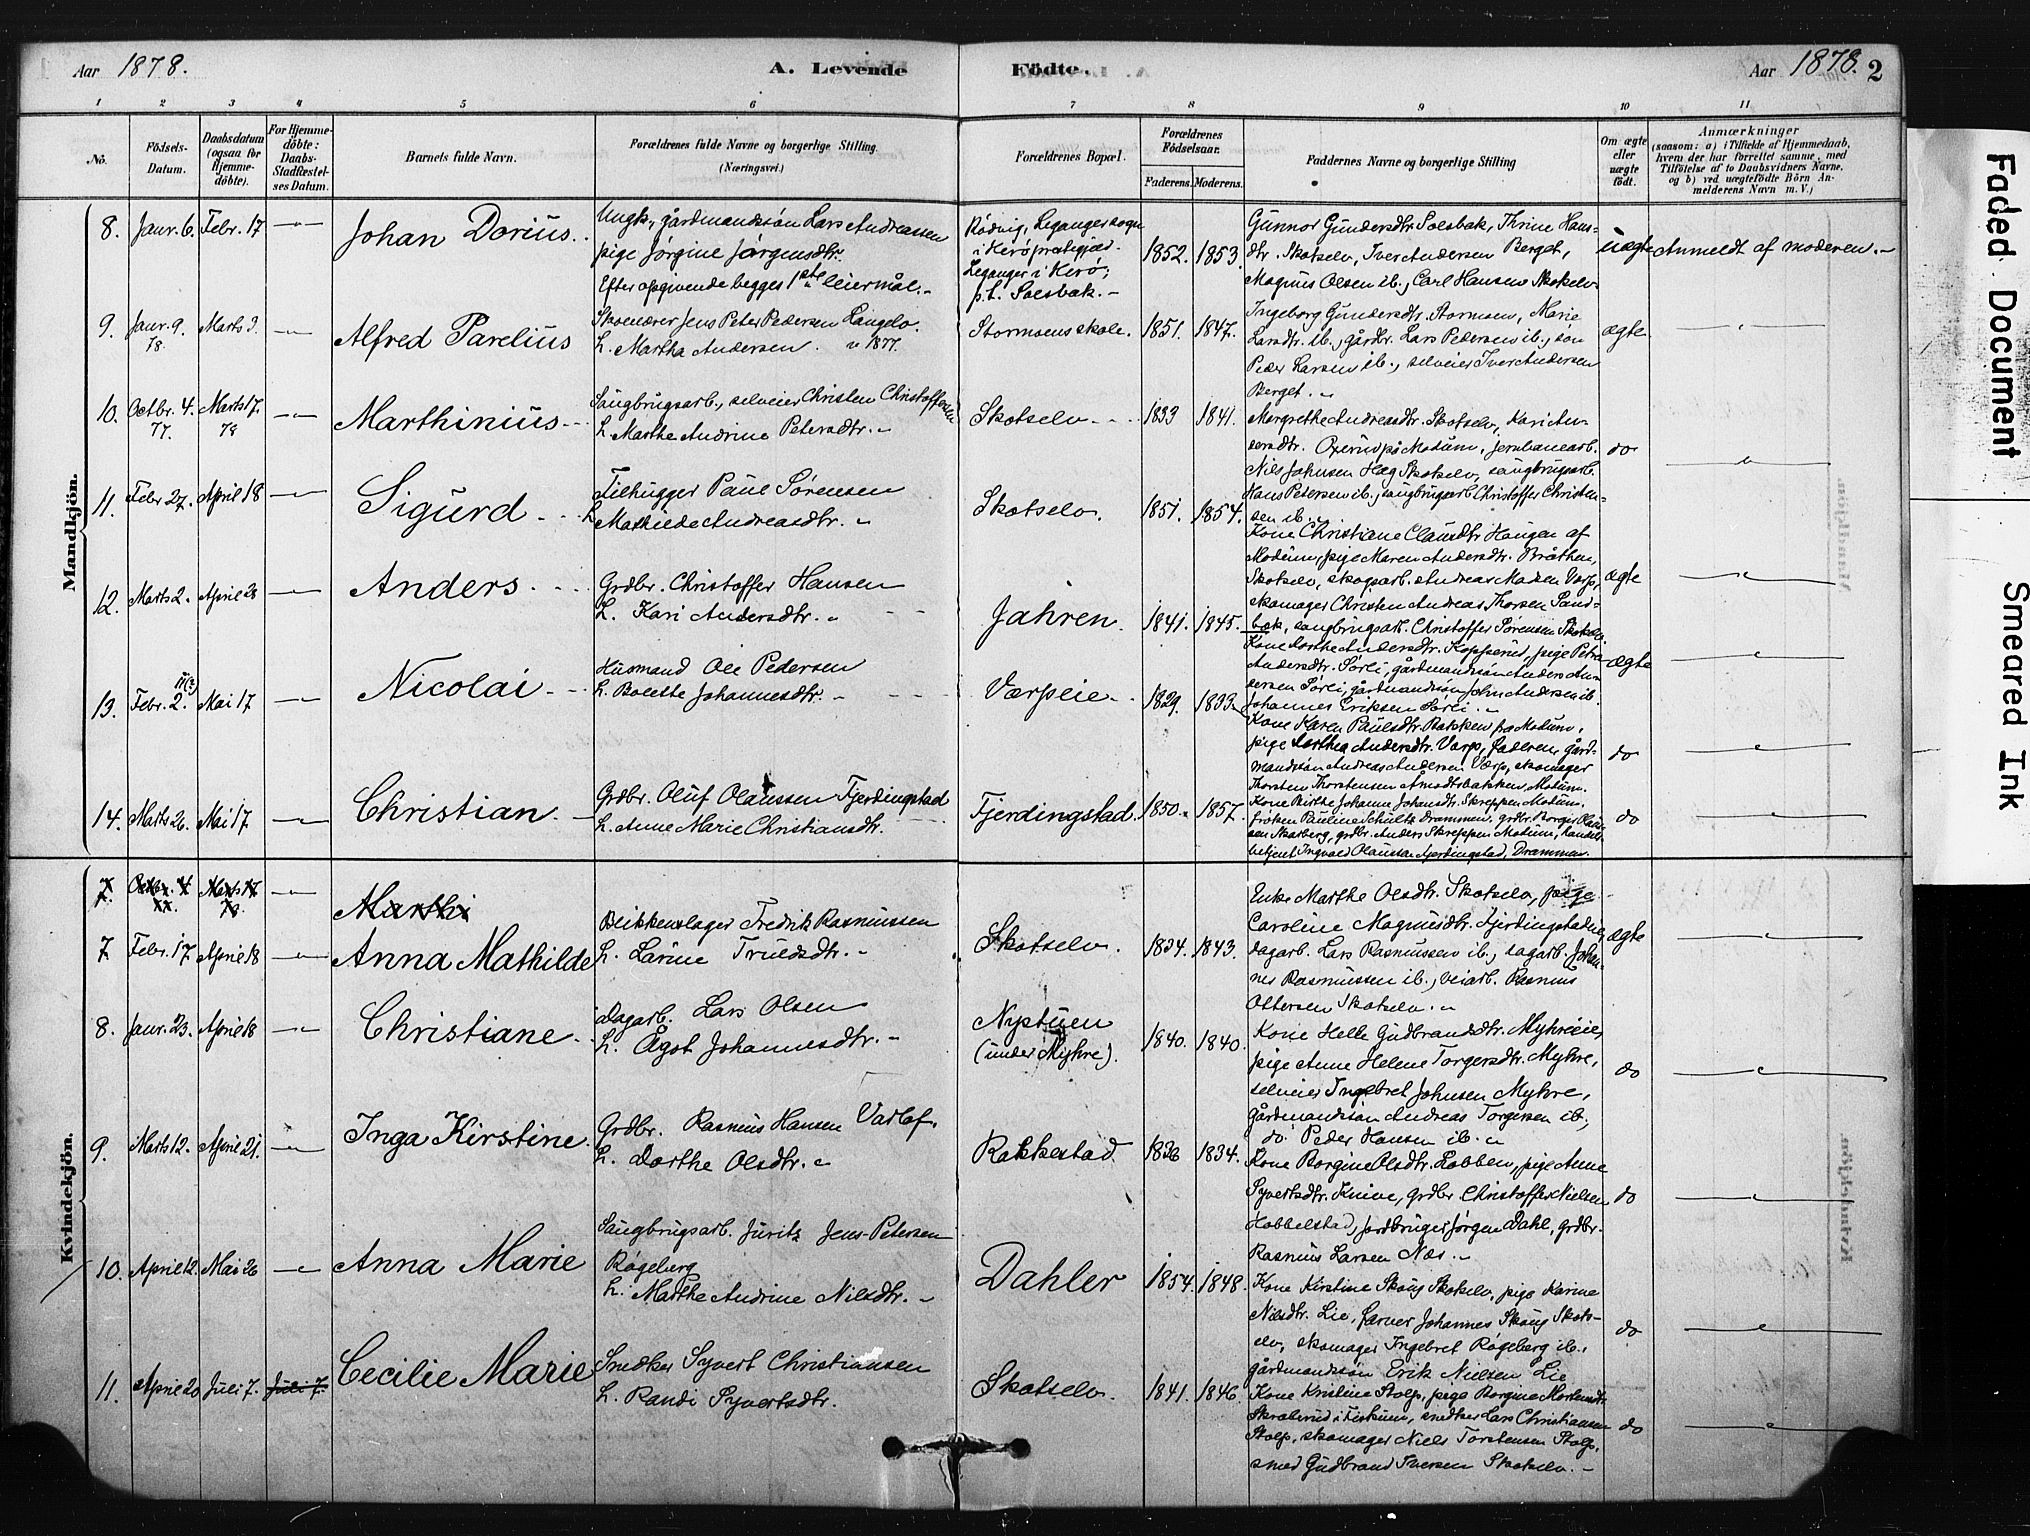 Aar 1878.
A. Levende Födte.
Aar 1878. 2
1 2 3 4 5 6 7 8 9 10 11
No.
Födsels-Datum.
Daabsdatum (ogsaa for Hjemme-döbte).
For Hjemme-döbte: Daabs-Stadfæstel-ses Datum.
Barnets fulde Navn.
Forældrenes fulde Navne og borgerlige Stilling. (Næringsvei.)
Forældrenes Bopæl.
Forældrenes Födselsaar.
Faderens. Moderens.
Faddernes Navne og borgerlige Stilling
Om ægte eller uægte födt.
Anmærkninger
(saasom: a) i Tilfælde af Hjemmedaab, hvem der har forrettet samme, med Tilföielse af to Daabsvidners Navne, og b) ved uægtefödte Börn An-melderens Navn m. V.)
Mandkjön.
8. Janr. 6. Febr. 17 Johan Dorius
Ungk., gårdmandssön Lars Andreassen
pige Jørgine Jørgensdtr.
Efter opgivende begges 1ste leiermål.
Rödvig, Leganger sogn
i Herö præstegjæld.
Leganger i Herö;
p.t. Solsbak.
1852. 1853.
Gunnor Gundersdtr Solsbak, Thrine Hans-
dtr. Skotselv, Iver Andersen Berget,
Magnus Olsen ib., Carl Hansen Skotselv
uægte Anmeldt af moderen.
9. Janr. 9. 78. Marts 3. Alfred Parelius
Skolelærer Jens Peter Pedersen Langelo.
h. Martha Andersen. v 1877.
Stormoens skole. 1851. 1847.
Ingeborg Gundersdtr. Stormoen, Marie
Larsdtr. ib., gårdbr. Lars Pedersen ib., sön
Peder Larsen ib., selveier Iver Andersen
Berget.
ægte
10. Octbr. 4. 77. Marts 17. 78 Marthinius
Saugbrugsarb., selveier Christen Christoffersen
h. Marthe Andrine Petersdtr.
Skotselv 1833 1841.
Margrethe Andreasdtr. Skotselv, Kari An-
dersdtr. Oxerud på Modum, jernbanearb.
Nils Johnsen Hæg Skotselv, saugbrugsarb.
Hans Petersen ib., saugbrugsarb. Christoffer Christen-
sen ib.
do
11. Febr 27. April 18 Sigurd
Tilhugger Paul Sørensen
h. Mathilde Andreasdtr.
Skotselv. 1851. 1854.
Kone Christiane Clausdtr Haugen af
Modum, pige Maren Andersdtr. Bråthen,
Skotselv, skogsarb. Andreas Madsen Varp,
skomager Christen Andreas Thorsen Sand-
bæk, saugbrugsarb. Christoffer Sørensen Skotselv.
ægte
12. Marts 2. April 28 Anders
Grdbr. Christoffer Hansen
h. Kari Andersdtr.
Jahren. 1841. 1845.
Kone Dorthe Andersdtr. Kopperud, pige Petra
Andersdtr. Sørli, gårdmandssön Anders An-
dersen Sørli, gårdmandssön John Andersen ib.
Johannes Eriksen Sørli.
ægte
13. Febr. 2. Mai 17 Nicolai
Husmand Ole Pedersen
h. Bolette Johannesdtr.
Værpeie 1829. 1833
Kone Karen Paulsdtr. Bakken fra Modum,
pige Dorthea Andersdtr. Varp, faderen, gård-
mandssön Andreas Andersen Værp, skomager
Thorsten Thorstensen Åmodtsbakken, Modum.
do
14. Marts 26. Mai 17 Christian
Grdbr. Oluf Olaussen Fjerdingstad
h. Anne Marie Christiansdtr.
Fjerdingstad. 1850. 1857.
Kone Birthe Johanne Johansdtr. Skreppen Modum,
frøken Pauline Schultz Drammen, grdbr. Borger Olaus-
sen Skarberg, grdbr. Anders Skreppen Modum, handels-
betjent Ingvald Olaussen Fjerdingstad, Drammen.
do
Kvindekjön.
7. Octbr. 4 77. Marts 17 78. Marthi
7. Febr. 17. April 18 Anna Mathilde
Blikkenslager Fredrik Rasmussen
h. Larine Truedsdtr.
Skotselv. 1834. 1843.
Enke Marthe Olsdtr. Skotselv, pige
Caroline Magnusdtr. Fjerdingstadeie,
dagarb. Lars Rasmussen ib., dagarb. Johan-
nes Rasmussen ib., veiarb. Rasmus
Ottersen Skotselv.
ægte
8. Janr. 23. April 18 Christiane
Dagarb. Lars Olsen
h. Ågot Johannesdtr.
Nystuen
(under Myhre). 1840. 1840.
Kone Helle Gudbrandsdtr. Myhreeie,
pige Anne Helene Torgersdtr. Myhre,
selveier Ingebret Johnsen Myhre,
gårdmandssön Andreas Torgersen ib.,
do. Peder Hansen ib.
do
9. Marts 12. April 21. Inga Kirstine
Grdbr. Rasmus Hansen Varlo f.
h. Dorthe Olsdtr.
Rakkestad. 1836 1834.
Kone Borgine Olsdtr. Lobben, pige Anne
Syvertsdtr. Knive, grdbr Christoffer Nielsen
Hobbelstad, jordbruger Jørgen Dahl, grdbr.
Rasmus Larsen Næs.
do
10. April 12. Mai 26 Anna Marie
Saugbrugsarb. Juritz Jens Petersen
Røgeberg
h. Marthe Andrine Nilsdtr.
Dahler 1854. 1848.
Kone Kirstine Skaug Skotselv, pige Karine
Nilsdtr. Lie, farver Johannes Skaug Skots-
elv, skomager Ingebret Røgeberg ib.,
gårdmandssön Erik Nielsen Lie
do
11. April 20 Juli 7. Juli 7. Cecilie Marie
Snedker Syvert Christiansen
h. Randi Syvertsdtr.
Skotselv. 1841. 1846.
Kone Kristine Stolp, pige Borgine Mortensdtr.
Skralerud i Fiskum, snedker Lars Christiansen
Stolp, skomager Niels Torstensen Stolp,
smed Gudbrand Iversen Skotselv.
do
Faded Document
Smeared Ink